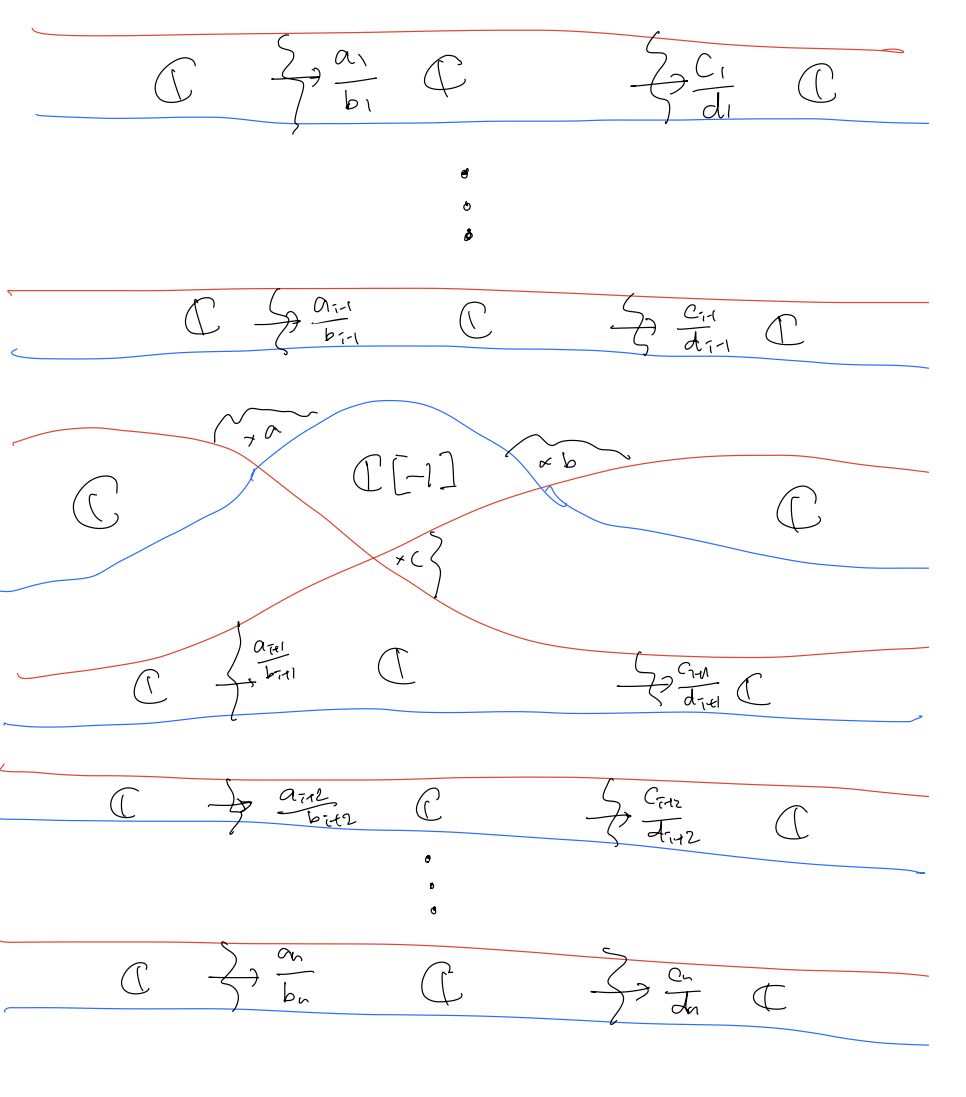 ℂ → a₁/b₁ ℂ → c₁/d₁ ℂ
⋮
ℂ → aᵢ₋₁/bᵢ₋₁ ℂ → cᵢ₋₁/dᵢ₋₁ ℂ
×a
×b
ℂ ℂ[-1] ℂ
×c
ℂ → aᵢ₊₁/bᵢ₊₁ ℂ → cᵢ₊₁/dᵢ₊₁ ℂ
ℂ → aᵢ₊₂/bᵢ₊₂ ℂ → cᵢ₊₂/dᵢ₊₂ ℂ
⋮
ℂ → aₙ/bₙ ℂ → cₙ/dₙ ℂ